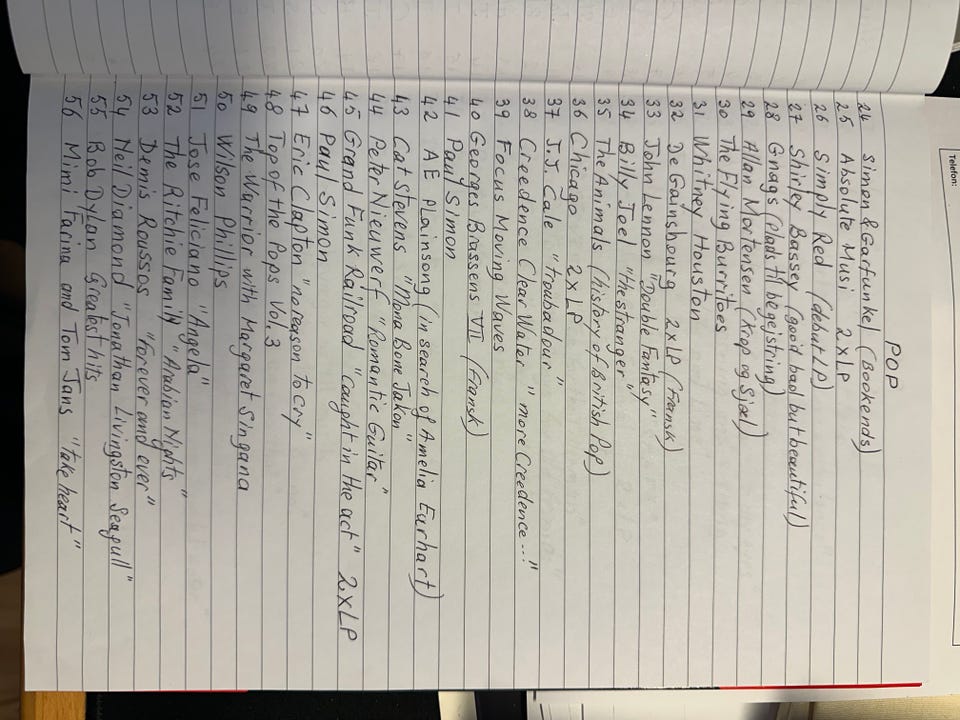 POP
24 Simon & Garfunkel (Bookends)
25 Absolute Musi 2xLP
26 Simply Red (debut LP)
27 Shirley Bassey (good bad but beautiful)
28 Gnags (Plads til begejstring)
29 Allan Mortensen (Krop og Sjæl)
30 The Flying Burritoes
31 Whitney Houston
32 De Gainsbourg 2xLP (Fransk)
33 John Lennon "Double Fantasy"
34 Billy Joel "the stranger"
35 The Animals (history of British Pop)
36 Chicago 2xLP
37 J.J. Cale "troubadour"
38 Creedence Clear Water "more Creedence..."
39 Focus Moving Waves
40 Georges Brassens VII (Fransk)
41 Paul Simon
42 AE Plainsong (in search of Amelia Eurhart)
43 Cat Stevens "Mona Bone Jakon"
44 Peter Nieuwerf "Romantic Guitar"
45 Grand Funk Railroad "caught in the act" 2xLP
46 Paul Simon
47 Eric Clapton "no reason to cry"
48 Top of the Pops Vol. 3
49 The Warrior with Margaret Singana
50 Wilson Phillips
51 Jose Feliciano "Angela"
52 The Ritchie Family "Arabian Nights"
53 Demis Roussos "Forever and ever"
54 Neil Diamond "Jonathan Livingston Seagull"
55 Bob Dylan greatest hits
56 Mimi Farina and Tom Jans "take heart"
Telefon: